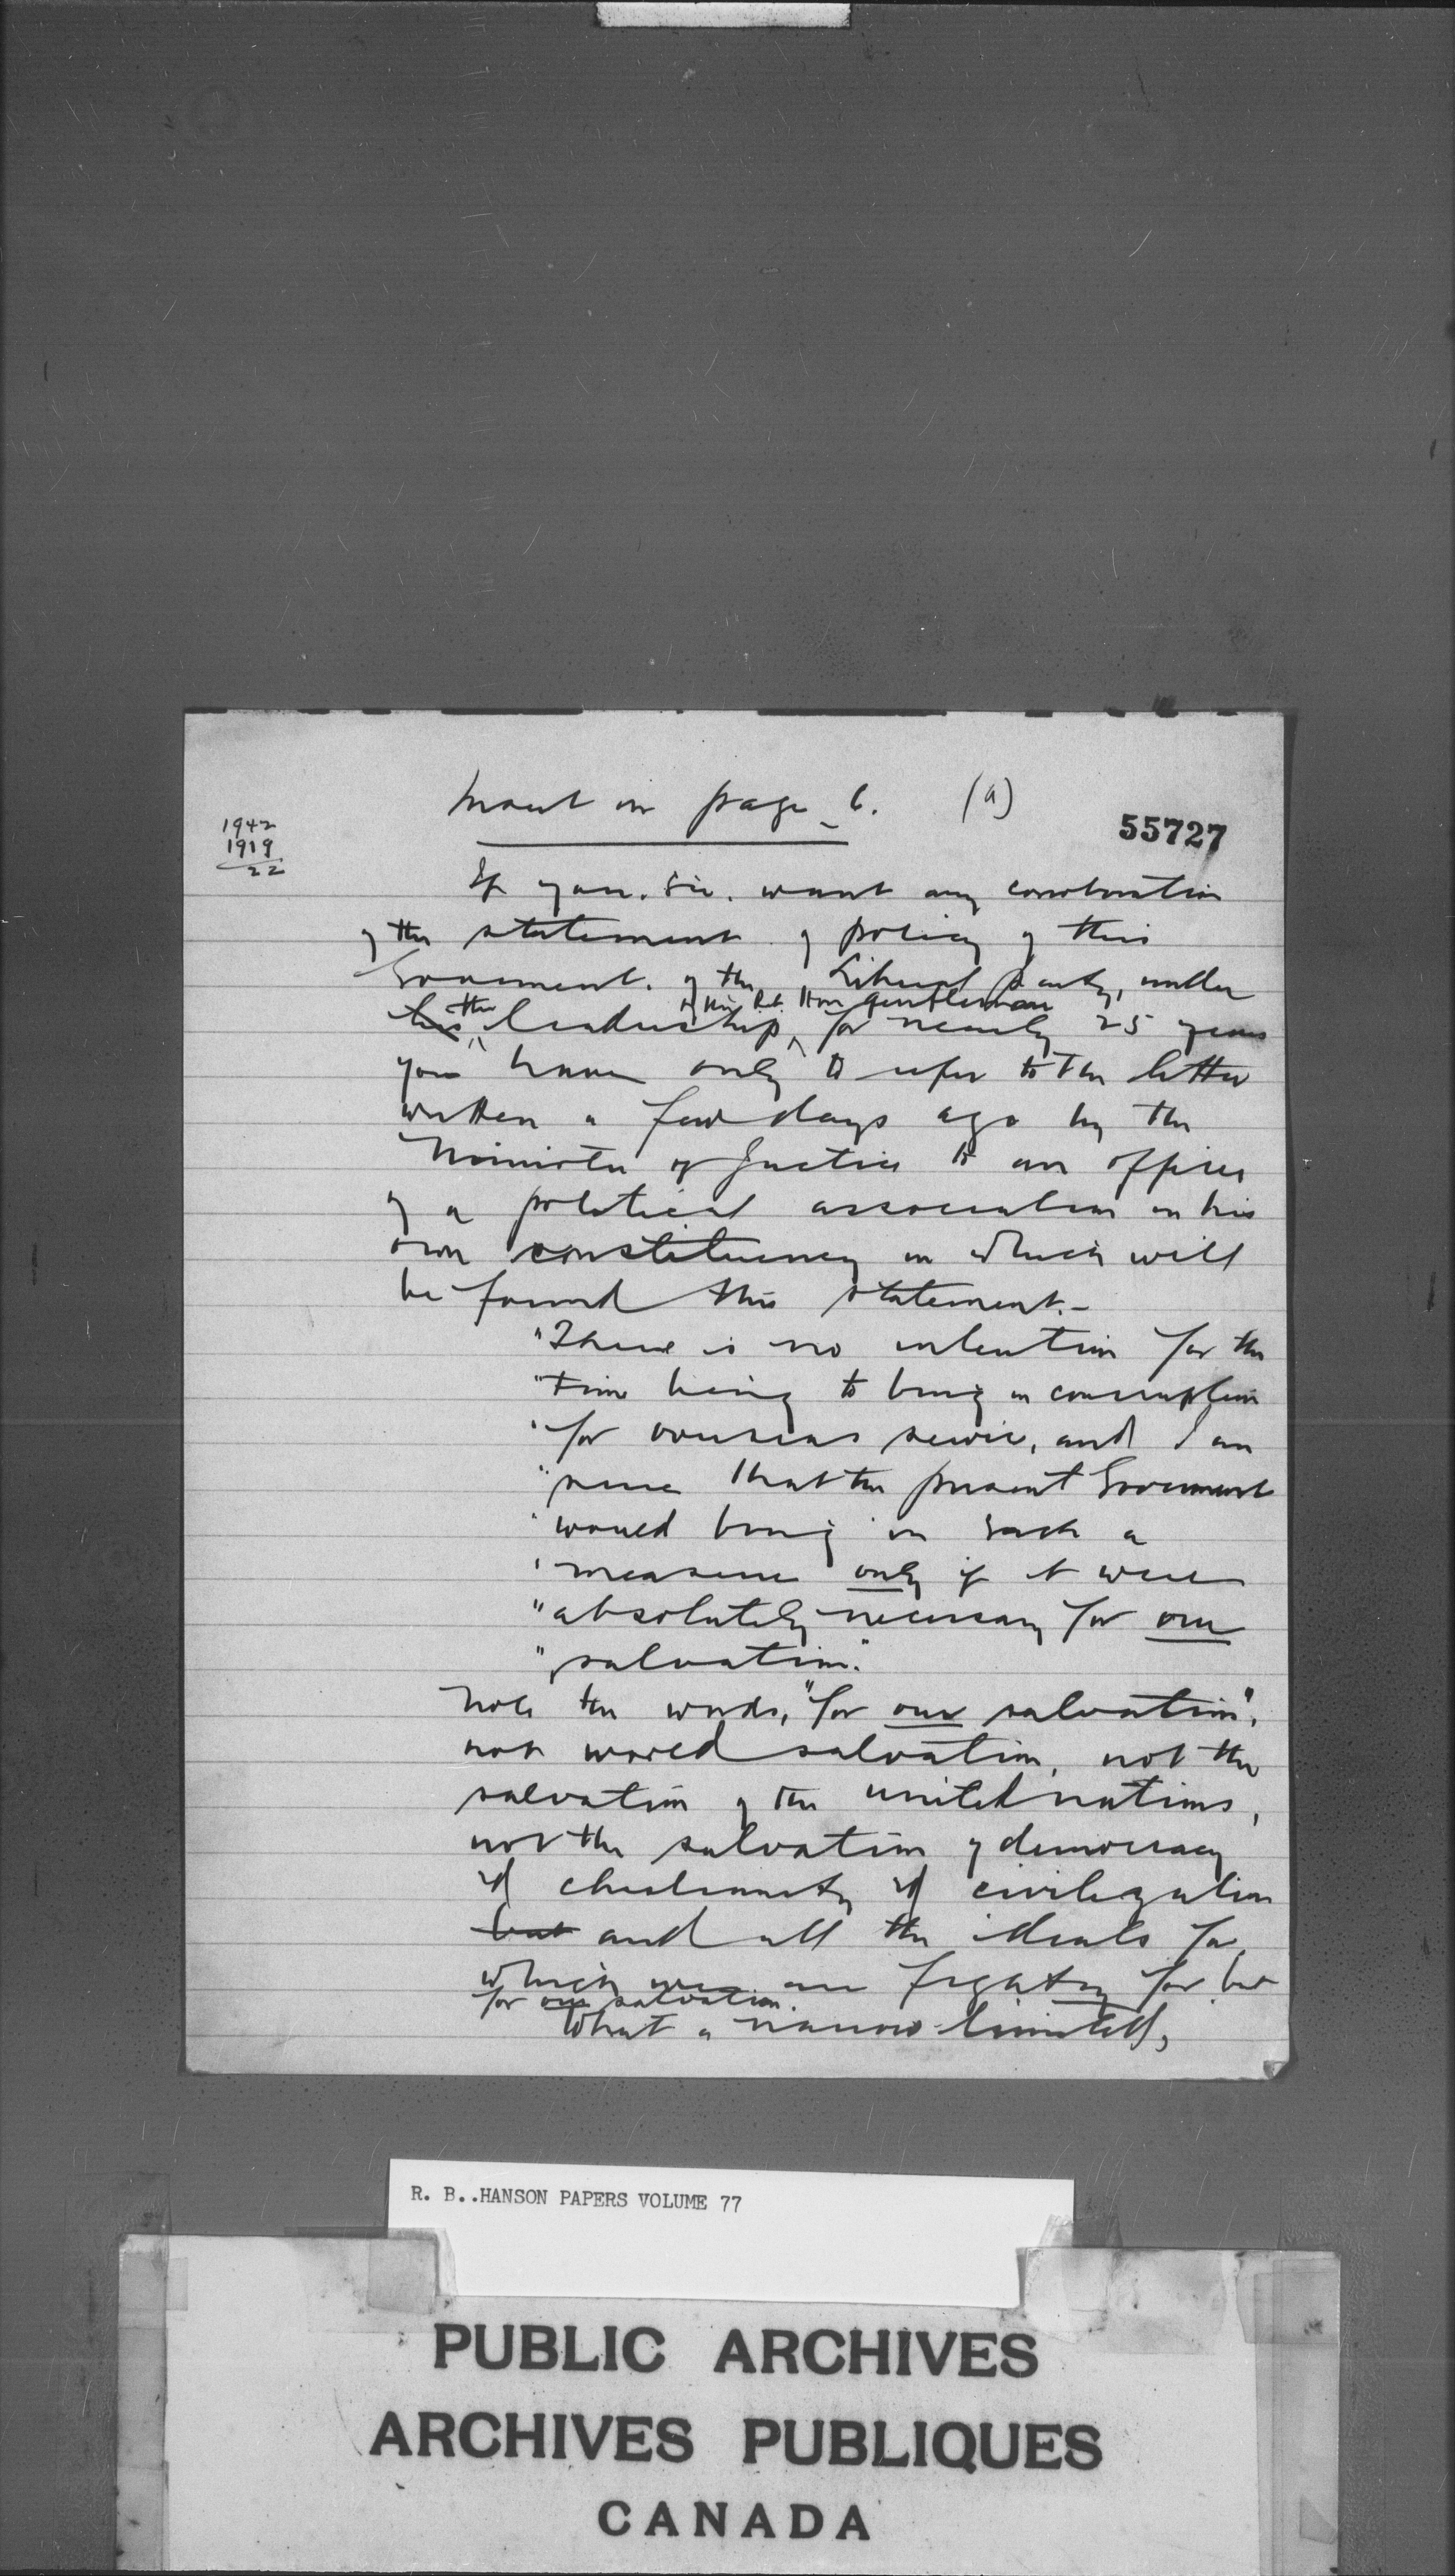 Insert on page 6. (a)
55727
1942
1919
22
If you. Sir. want any corroboration
of the statement of policy of this
Government. of the Liberal party, under
his the leadership, of this Rt. Hon gentleman for nearly 25 years
you have only to refer to the letter
written a few days ago by the
Minister of Justice to an officer
of a political association in his
own constituency in which will
be found this statement.-
"There is no intention for the
"time being to bring in conscription
"for overseas service, and I am
"sure that the present Government
"would bring in such a
"measure only if it were
"absolutely necessary for our
"salvation."
Note the words, "for our salvation",
not world salvation, not the
salvation of the united nations,
not the salvation of democracy
of christianity of civilization
but and all the ideals for
which we are fighting for but
for our salvation.
What a narrow limited,
R. B..HANSON PAPERS VOLUME 77
PUBLIC ARCHIVES
ARCHIVES PUBLIQUES
CANADA